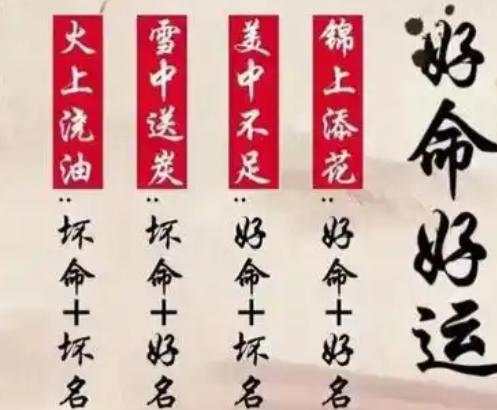 好命好运
锦上添花：好命+好名
美中不足：好命+坏名
雪中送炭：坏命+好名
火上浇油：坏命+坏名